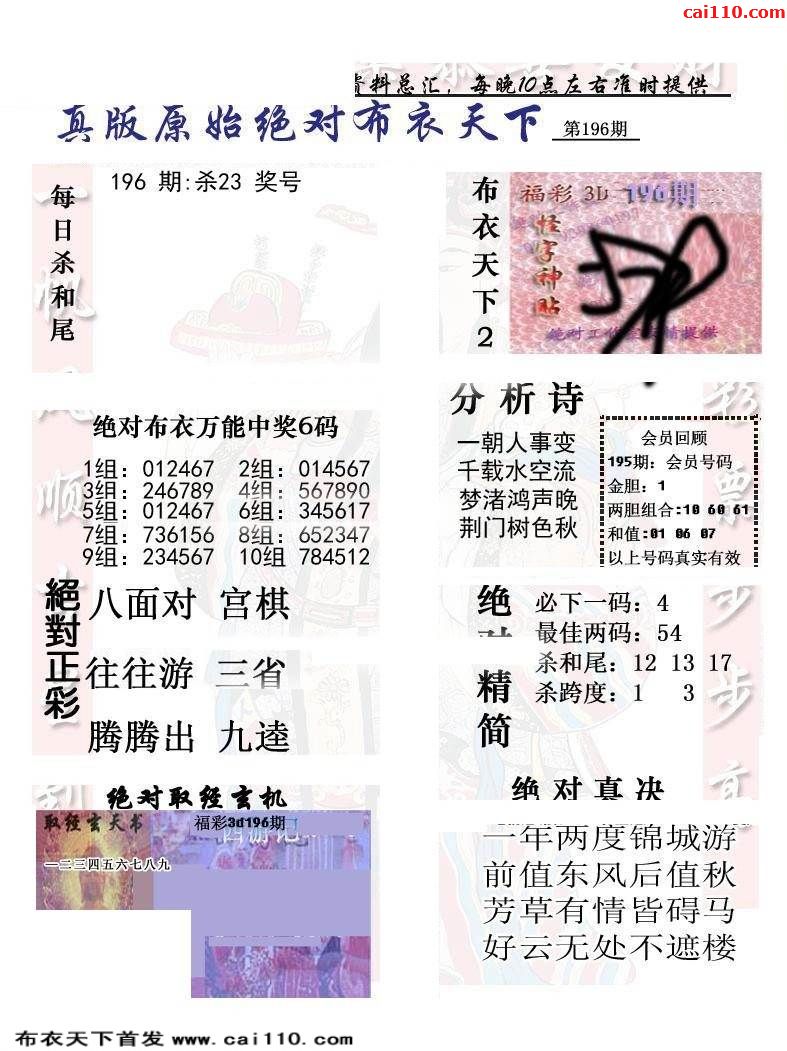 cai110.com
资料总汇，每晚10点左右准时提供
真版原始绝对布衣天下 第196期
每日杀和尾
196 期:杀23 奖号
布衣天下2
福彩 3D 196期
怪字神贴
绝对布衣万能中奖6码
1组：012467 2组：014567
3组：246789 4组：567890
5组：012467 6组：345617
7组：736156 8组：652347
9组：234567 10组 784512
分析诗
一朝人事变
千载水空流
梦渚鸿声晚
荆门树色秋
会员回顾
195期：会员号码
金胆：1
两胆组合:10 60 61
和值:01 06 07
以上号码真实有效
絕對正彩
八面对 宫棋
往往游 三省
腾腾出 九逵
绝对精简
必下一码：4
最佳两码：54
杀和尾：12 13 17
杀跨度：1 3
绝对取经玄机
取经玄天书
福彩3d196期
西游记
一二三四五六七八九
绝对真决
一年两度锦城游
前值东风后值秋
芳草有情皆碍马
好云无处不遮楼
布衣天下首发 www.cai110.com